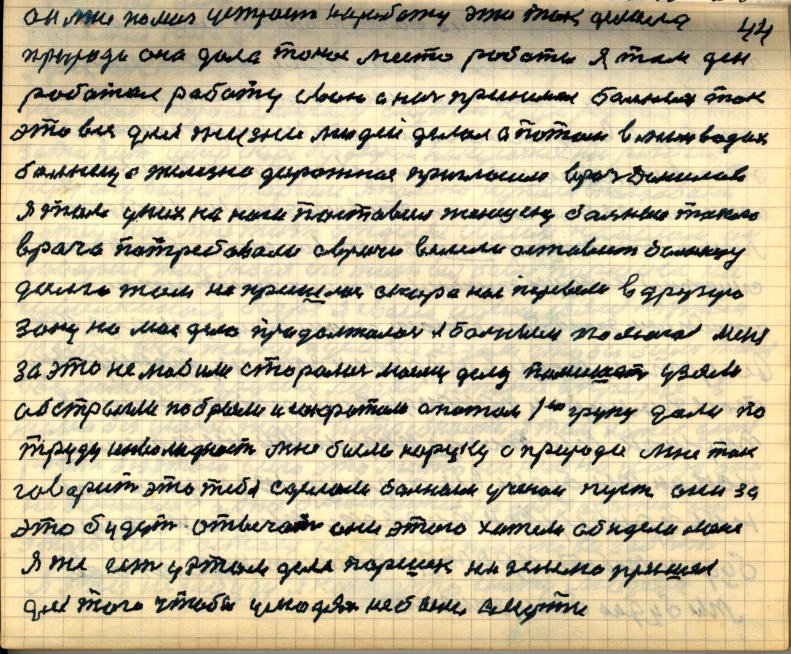 он мне помог устроит на работу это так делала 44
природа она дала такое место работы я там ден
работал работу свою с ноч принимал больных так
это вся для жизни людей делал а потом в мин водах
больнецу железно дорожная пригласил врач Данилов
я там у них на ноги поставил женщену больные такого
врача потребовали а врачи велели оставит больницу
долго там не пришлос скора нас перевели в другую
зону но мое дело продолжалос я больным помогал меня
за это не любили старалис моему делу помешат узяли
обстригли побрили и сократили а потом 1ую групу дали по
труду инвалидност мне было наруку а природа мне так
говарит это тебя сделали больным ученаи пуст они за
это будут отвечат они этого хатели обидели мене
я же ест у этом деле паршек на землю пришол
для того чтобы у людях не было смерти